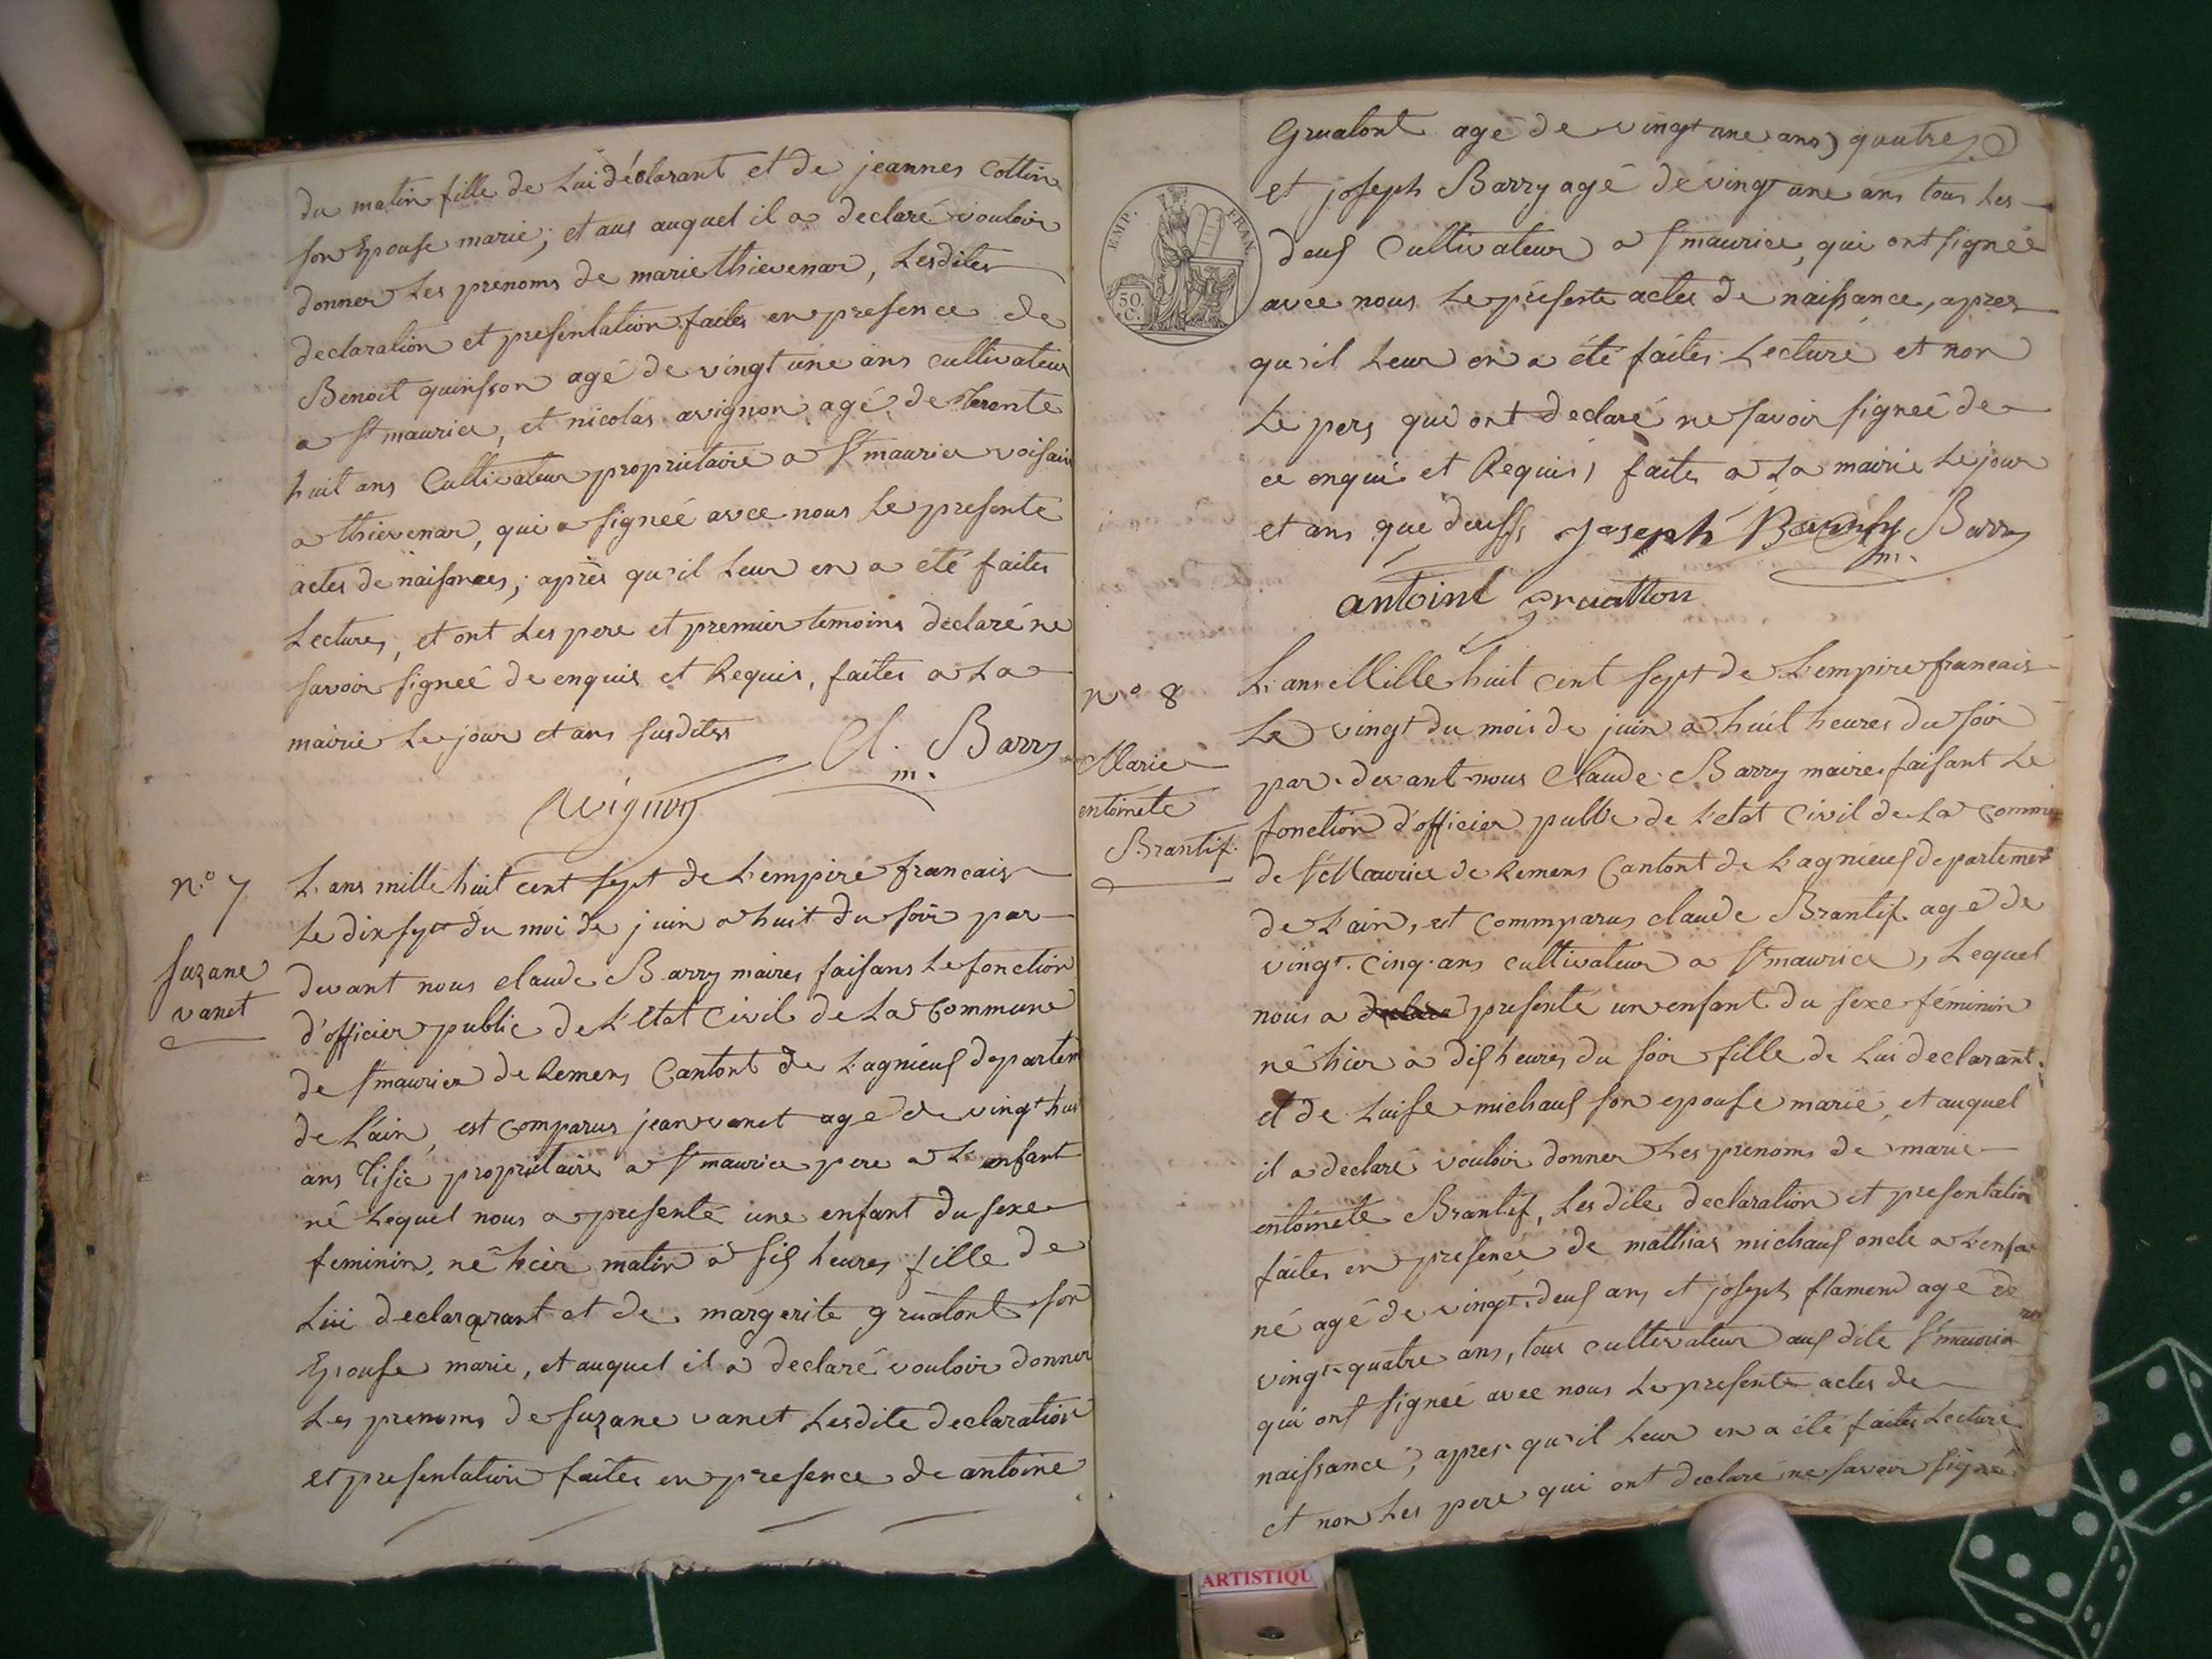 du matin fille de Lui déclarant et de jeannes Cottin
son Epouse marie; et aus auquel il a declaré vouloir
donner Les prenoms de marie thievenar, Lesdites
declaration et presentation faites en presence de
Benoit quinsson agé de vingt une ans cultivateur
a St maurice, et nicolas avignon agé de trente
huit ans Cultivateur proprietaire a St maurice voisain
a thievenar, qui a signée avec nous Le presente
actes de naisances; après qu'il Leur en a été faites
Lectures, et ont Les pere et premier temoins déclaré ne
savoir signeé de enquis et Requis, faites a La
mairie Le jour et ans susdites
Cl. Barry
m.
avignon
n.o 7
suzane
vanet
L'ans mille huit cent sept de L'empire francais
Le dix sept du moi de juin a huit du soir par
devant nous claude Barry maires faisans Le fonction
d'officier public de L'Etat Civil de La Commune
de St maurice de Remens Canton de Lagnieuf departem
de L'ain, est comparus jean vanet age de vingt hui
ans tisié proprietaire a St maurice pere a L'enfant
né Lequel nous a presenté une enfant du sexe
feminin. né hier matin a sis heures fille de
Lui declararant et de margerite grualont son
Epouse marie, et auquel il a declaré vouloir donner
Les prenoms de suzane vanet Lesdite declaration
et presentation faites en presence de antoine
EMP. FRAN.
50.
C.
Grualont agé de vingt une ans) quatre
et joseph Barry agé de vingt une ans tous Les
deus Cultivateur a St maurice, qui ont signée
avec nous Le presente actes de naissance, apres
qu'il Leur en a été faites Lecture et non
Le pers qui ont declaré ne savoir signeé de
ce enqui et Requis, faite a La mairie Le jour
et ans que deuss Joseph Barry Barry
m.
antoine gruatton
n.o 8
Marie
entoinete
Brantif.
L'ans Mille huit Cent Sept de L'empire francais
Le vingt du mois de juin a huit heures du soir
par-devant nous Claude Barry maire faisant Le
fonction d'officier public de L'etat Civil de La Commu
de St Maurice de Remens Cantont de Lagnieuf departement
de L'ain, est Commparus claude Brantif agé de
vingt-cinq ans cultivateur a St maurice, Lequel
nous a presenté un enfant du sexe féminin
né hier à dis heures du soir fille de Lui declarant
et de Luise michaus son epouse marié, et auquel
il a declaré vouloir donner Les prenoms de marie
entoinete Brantif, Les dite declaration et presentation
faites en presence de mathias michaus oncle a L'enfa
né agé de vingt-deus ans et joseph flamend age de
vingt-quatre ans, tous cultivateur aus dite St maurice
qui ont signeé avec nous Le presente actes de
naissance; apres qu'il Leur en a été faites Lecture
et non Les pere qui ont declaré ne savoir signé
ARTISTIQU